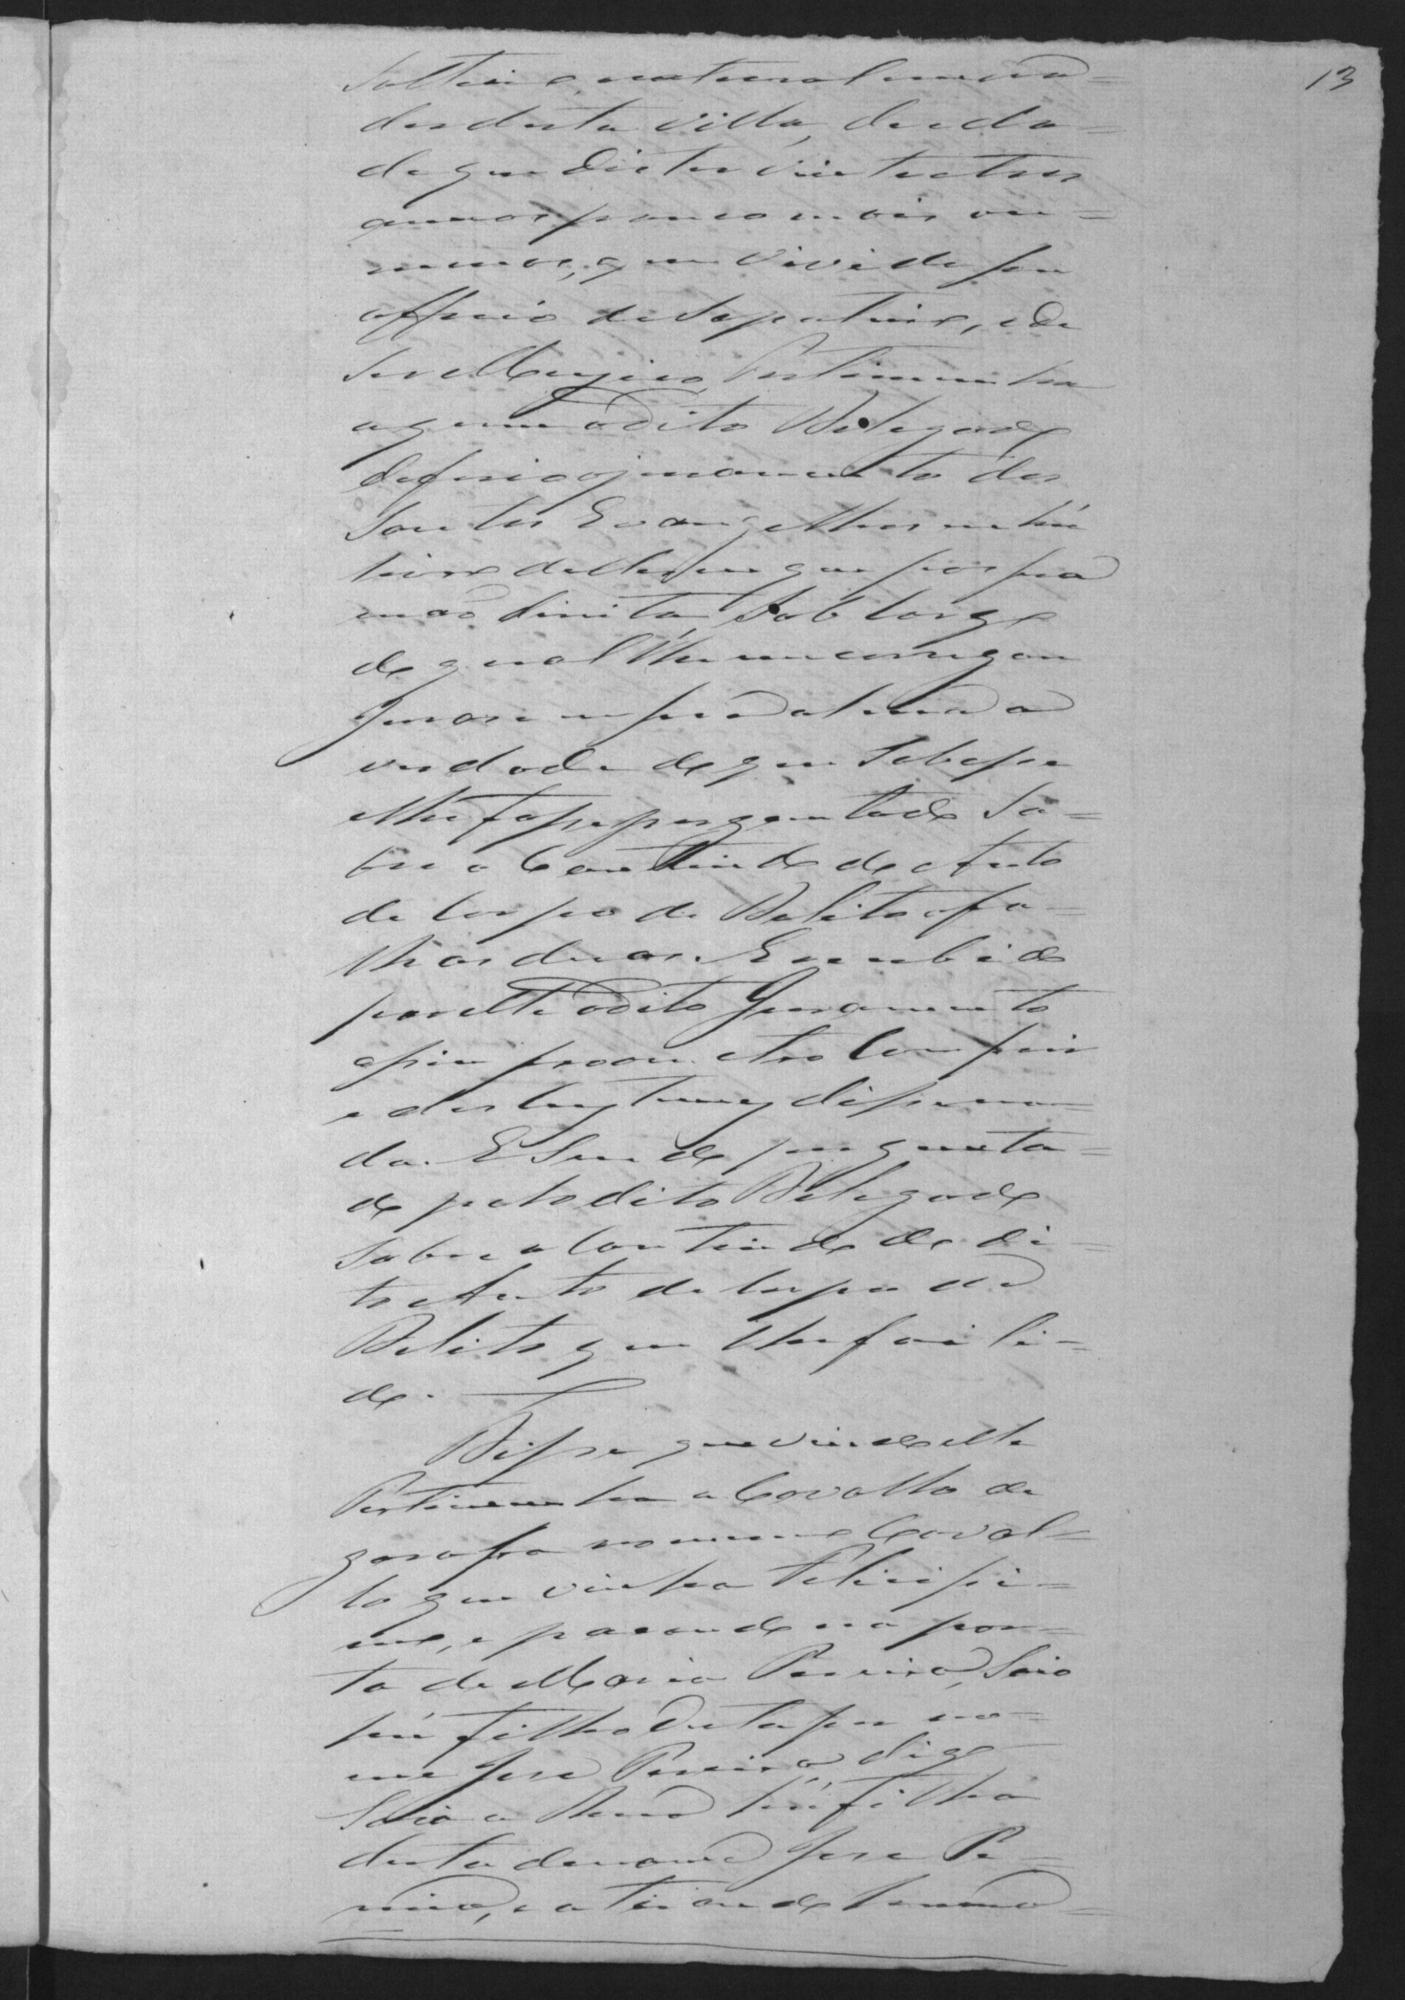 13
Solteiro, natural e mora=
dor desta Villa, de eda=
de que disse ter vinte e tres
annos pouco mais ou=
menos, que vive de seu
officio de Sapateiro, e da
Testimunha
a quem o dito Delegado
deferio o juramento dos
Santos Evangelhos em hú
livro delles em que pos sua
mão direita, Sob Cargo
do qual lhe encarregou
Jurasse e
verdade do que Soubesse
e lhe fosse perguntado So=
bre o Contheudo do Auto
de Corpo de Delito a fo=
lhas duas. E recebido
por elle o dito Juramento
assim prometeo Cumprir
e dos Custumes disse na=
da. E Sendo pergunta=
do pelo dito Delegado
Sobre o Contheudo do di=
to Auto de Corpo de
Delito que lhe foi li=
do.
Disse que vindo elle
Testimunha a Cavallo da
garupa no mesmo Caval=
lo que vinha Felicissi=
mo, e parando na por=
ta de Maria Pereira, Saio
hú filho desta por no=
me José Pereira, digo
Saio a hú filho
desta de nome José Pe=
reira, e atirando huma=